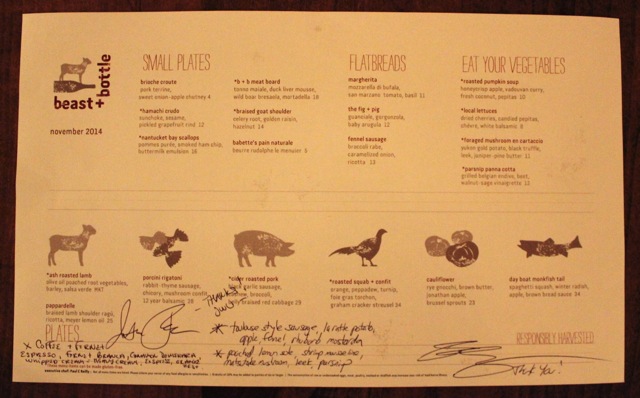 beast + bottle
november 2014
SMALL PLATES
brioche croute
pork terrine,
sweet onion-apple chutney 4
*hamachi crudo
sunchoke, sesame,
pickled grapefruit rind 12
*nantucket bay scallops
pommes purée, smoked ham chip,
buttermilk emulsion 16
*b + b meat board
tonno maiale, duck liver mousse,
wild boar bresaola, mortadella 18
*braised goat shoulder
celery root, golden raisin,
hazelnut 14
babette's pain naturale
beurre rudolphe le meunier 5
FLATBREADS
margherita
mozzarella di bufala,
san marzano tomato, basil 11
the fig + pig
guanciale, gorgonzola,
baby arugula 12
fennel sausage
broccoli rabe,
caramelized onion,
ricotta 13
EAT YOUR VEGETABLES
*roasted pumpkin soup
honeycrisp apple, vadouvan curry,
fresh coconut, pepitas 10
*local lettuces
dried cherries, candied pepitas,
chèvre, white balsamic 8
*foraged mushroom en cartoccio
yukon gold potato, black truffle,
leek, juniper-pine butter 11
*parsnip panna cotta
grilled belgian endive, beet,
walnut-sage vinaigrette 12
*ash roasted lamb
olive oil poached root vegetables,
barley, salsa verde MKT
pappardelle
braised lamb shoulder ragù,
ricotta, meyer lemon oil 20
porcini rigatoni
rabbit-thyme sausage,
chicory, mushroom confit,
12 year balsamic 28
*cider roasted pork
garlic sausage,
broccoli,
braised red cabbage 29
*roasted squab + confit
orange, peppadew, turnip,
foie gras torchon,
graham cracker streusel 34
cauliflower
rye gnocchi, brown butter,
jonathan apple,
brussel sprouts 23
day boat monkfish tail
spaghetti squash, winter radish,
apple, brown bread sauce 34
PLATES
RESPONSIBLY HARVESTED
- THANKS!
* toulouse style sausage, laratte potato,
apple, fennel, rhubarb mostarda
* poached lemon sole, shrimp mousseline,
matsutake mushroom, leek, parsnip
X COFFEE + FERNET
ESPRESSO, FERNET BRANCA,
WHIPPED CREAM
Thank You!